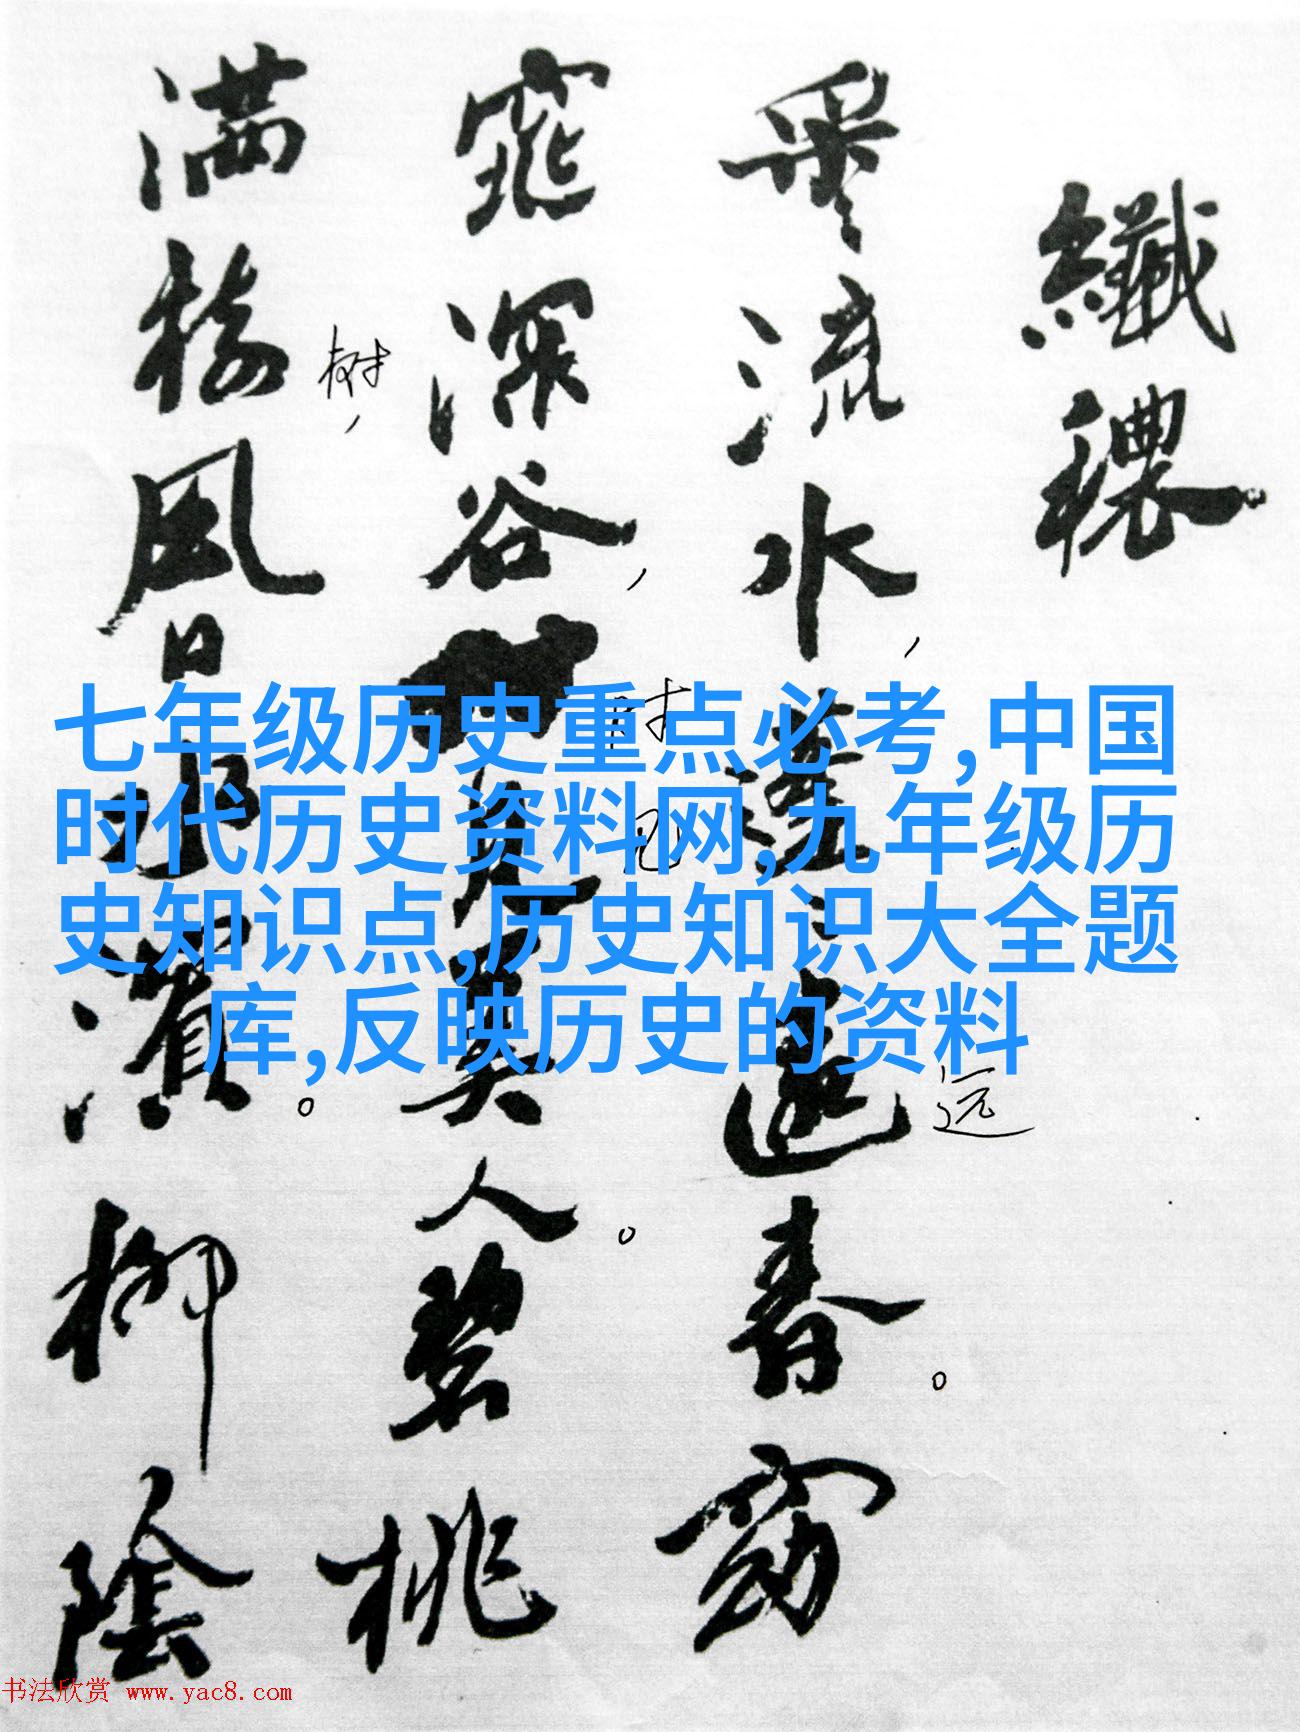 纖穠
采〻流水，蓬〻遠春。窈
远
窕深谷，見美人。碧桃
时见
满樹風日水濱。柳陰
树，
七年级历史重点必考,中国
时代历史资料网,九年级历
史知识点,历史知识大全题
库,反映历史的资料
书法欣赏 www.yac8.com